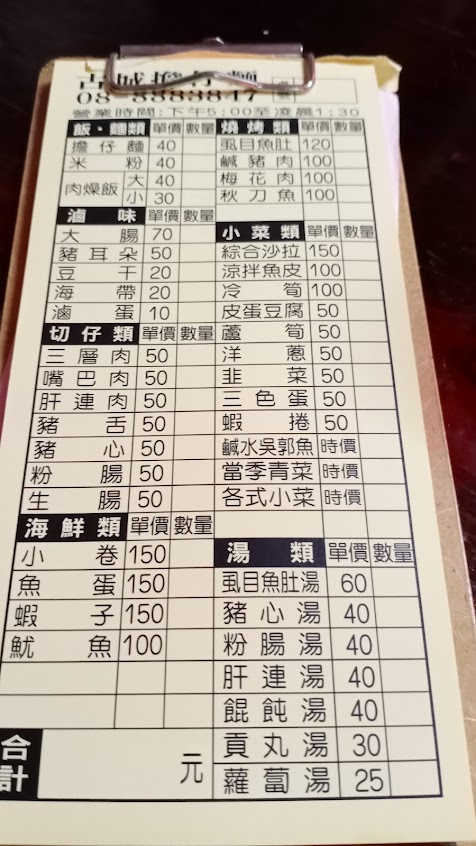 古城擔仔麵
08-8883847
營業時間:下午5:00至凌晨1:30
飯、麵類 單價 數量
擔仔麵 40
米粉 40
肉燥飯 大 40
小 30
滷味 單價 數量
大腸 70
豬耳朵 50
豆干 20
海帶 20
滷蛋 10
切仔類 單價 數量
三層肉 50
嘴巴肉 50
肝連肉 50
豬舌 50
豬心 50
粉腸 50
生腸 50
海鮮類 單價 數量
小卷 150
魚蛋 150
蝦子 150
魷魚 100
合計 元
燒烤類 單價 數量
虱目魚肚 120
鹹豬肉 100
梅花肉 100
秋刀魚 100
小菜類 單價 數量
綜合沙拉 150
涼拌魚皮 100
冷筍 100
皮蛋豆腐 50
蘆筍 50
洋蔥 50
韭菜 50
三色蛋 50
蝦捲 50
鹹水吳郭魚 時價
當季青菜 時價
各式小菜 時價
湯類 單價 數量
虱目魚肚湯 60
豬心湯 40
粉腸湯 40
肝連湯 40
餛飩湯 40
貢丸湯 30
蘿蔔湯 25